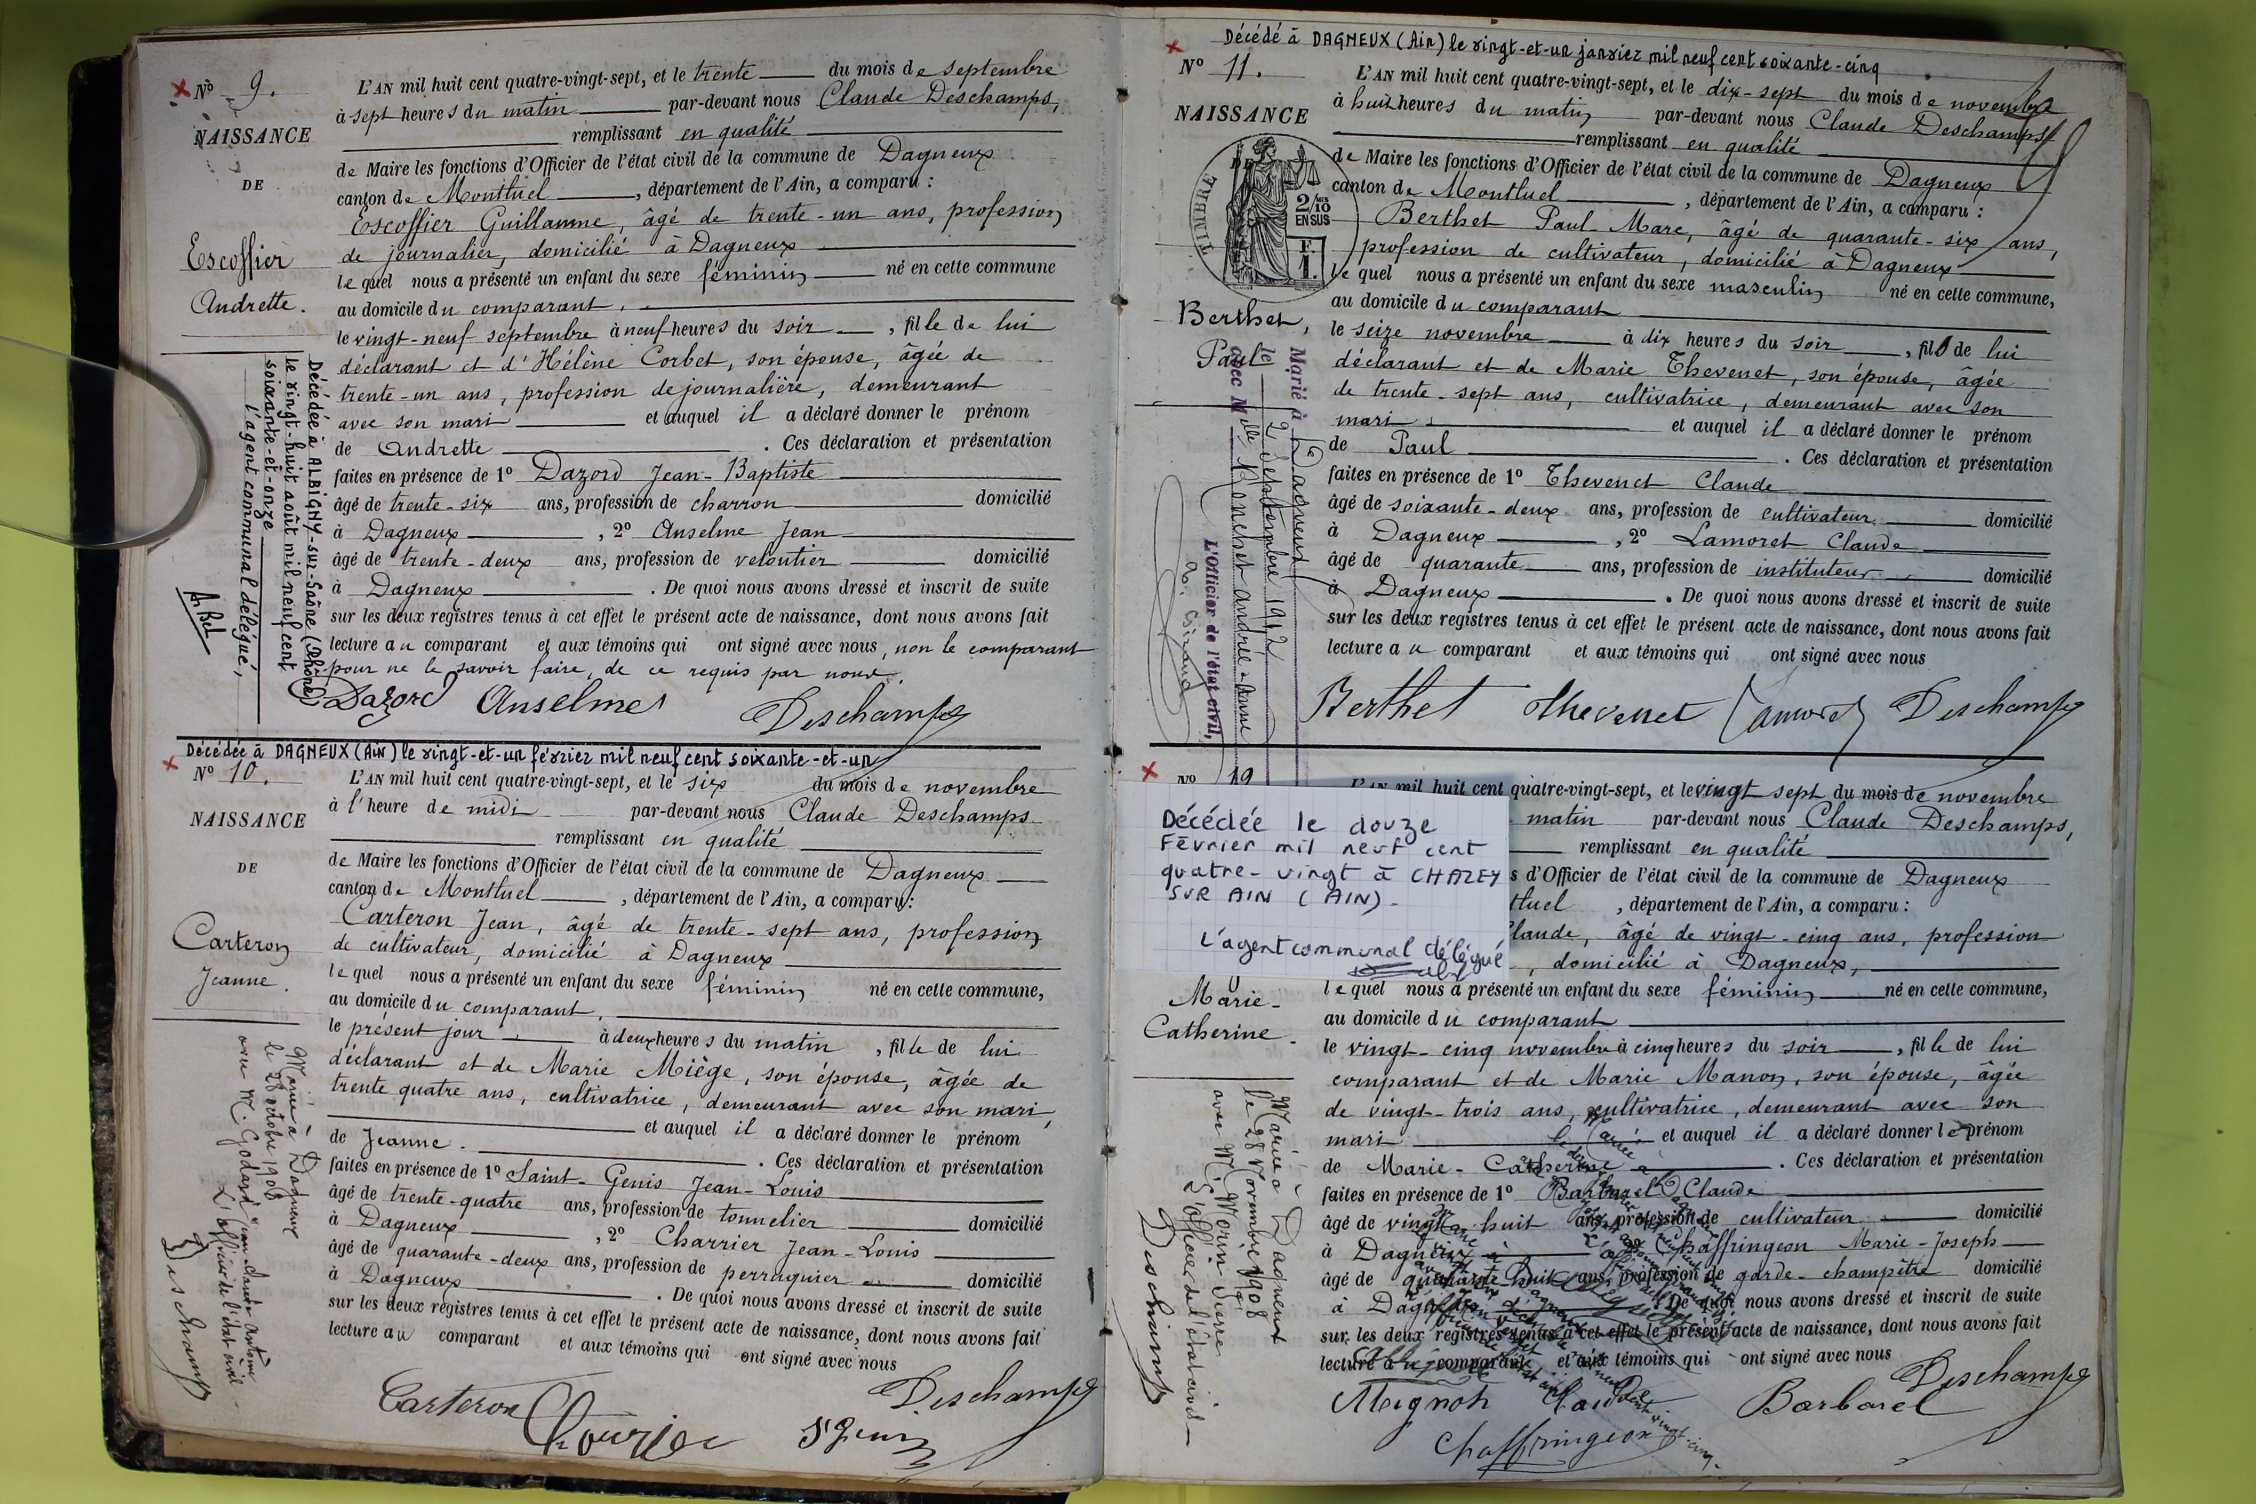 Nº 9.
NAISSANCE
DE
Escoffier
Andrette.
L'AN mil huit cent quatre-vingt-sept, et le trente du mois de septembre
à sept heures du matin par-devant nous Claude Deschamps,
remplissant en qualité
de Maire les fonctions d'Officier de l'état civil de la commune de Dagneux
canton de Montluel, département de l'Ain, a comparu :
Escoffier Guillaume, âgé de trente-un ans, profession
de journalier, domicilié à Dagneux
lequel nous a présenté un enfant du sexe féminin né en cette commune
au domicile du comparant,
le vingt-neuf septembre à neuf heures du soir, fille de lui
déclarant et d'Hélène Corbet, son épouse, âgée de
trente-un ans, profession de journalière, demeurant
avec son mari et auquel il a déclaré donner le prénom
de Andrette. Ces déclaration et présentation
faites en présence de 1º Dazord Jean-Baptiste
âgé de trente-six ans, profession de charron domicilié
à Dagneux, 2º Anselme Jean
âgé de trente-deux ans, profession de veloutier domicilié
à Dagneux. De quoi nous avons dressé et inscrit de suite
sur les deux registres tenus à cet effet le présent acte de naissance, dont nous avons fait
lecture au comparant et aux témoins qui ont signé avec nous, non le comparant
pour ne le savoir faire, de ce requis par nous.
Dazord Anselme Deschamps
Décédée à ALBIGNY-sur-Saône (Rhône)
le vingt-huit août mil neuf cent
soixante-et-onze
l'agent communal délégué,
Décédée à DAGNEUX (Ain) le vingt-et-un février mil neuf cent soixante-et-un
Nº 10.
NAISSANCE
DE
Carteron
Jeanne.
L'AN mil huit cent quatre-vingt-sept, et le six du mois de novembre
à l'heure de midi par-devant nous Claude Deschamps
remplissant en qualité
de Maire les fonctions d'Officier de l'état civil de la commune de Dagneux
canton de Montluel, département de l'Ain, a comparu :
Carteron Jean, âgé de trente-sept ans, profession
de cultivateur, domicilié à Dagneux
lequel nous a présenté un enfant du sexe féminin né en cette commune,
au domicile du comparant,
le présent jour à deux heures du matin, fille de lui
déclarant et de Marie Miège, son épouse, âgée de
trente quatre ans, cultivatrice, demeurant avec son mari,
et auquel il a déclaré donner le prénom
de Jeanne. Ces déclaration et présentation
faites en présence de 1º Saint-Genis Jean-Louis
âgé de trente-quatre ans, profession de tonnelier domicilié
à Dagneux, 2º Charrier Jean-Louis
âgé de quarante-deux ans, profession de perruquier domicilié
à Dagneux. De quoi nous avons dressé et inscrit de suite
sur les deux registres tenus à cet effet le présent acte de naissance, dont nous avons fait
lecture au comparant et aux témoins qui ont signé avec nous
Carteron Deschamps
St Genis
Mariée à Dagneux
le 28 octobre 1908
avec M. Godard Jean Claude Antoine
L'officier de l'état civil
Deschamps
Décédé à DAGNEUX (Ain) le vingt-et-un janvier mil neuf cent soixante-cinq
Nº 11.
NAISSANCE
DE
TIMBRE
2/10
EN SUS
F.
1.
Berthet,
Paul
L'AN mil huit cent quatre-vingt-sept, et le dix-sept du mois de novembre
à huit heures du matin par-devant nous Claude Deschamps
remplissant en qualité
de Maire les fonctions d'Officier de l'état civil de la commune de Dagneux
canton de Montluel, département de l'Ain, a comparu :
Berthet Paul-Marc, âgé de quarante-six ans,
profession de cultivateur, domicilié à Dagneux
lequel nous a présenté un enfant du sexe masculin né en cette commune,
au domicile du comparant
le seize novembre à dix heures du soir, fils de lui
déclarant et de Marie Thevenet, son épouse, âgée
de trente-sept ans, cultivatrice, demeurant avec son
mari et auquel il a déclaré donner le prénom
de Paul. Ces déclaration et présentation
faites en présence de 1º Thevenet Claude
âgé de soixante-deux ans, profession de cultivateur domicilié
à Dagneux, 2º Lamoret Claude
âgé de quarante ans, profession de instituteur domicilié
à Dagneux. De quoi nous avons dressé et inscrit de suite
sur les deux registres tenus à cet effet le présent acte de naissance, dont nous avons fait
lecture au comparant et aux témoins qui ont signé avec nous
Berthet Thevenet Lamoret Deschamps
Marié à Dagneux
le 2 septembre 1912
avec Mlle Andrée-Anne
L'Officier de l'état civil,
Nº 12
Décédée le douze
Février mil neuf cent
quatre-vingt à CHAZEY
SUR AIN (AIN).
L'agent communal délégué
Marie-
Catherine.
L'AN mil huit cent quatre-vingt-sept, et le vingt sept du mois de novembre
matin par-devant nous Claude Deschamps,
remplissant en qualité
s d'Officier de l'état civil de la commune de Dagneux
tluel, département de l'Ain, a comparu :
Claude, âgé de vingt-cinq ans, profession
, domicilié à Dagneux,
lequel nous a présenté un enfant du sexe féminin né en cette commune,
au domicile du comparant
le vingt-cinq novembre à cinq heures du soir, fille de lui
comparant et de Marie Manon, son épouse, âgée
de vingt-trois ans, cultivatrice, demeurant avec son
mari et auquel il a déclaré donner le prénom
de Marie-Catherine. Ces déclaration et présentation
faites en présence de 1º Barbarel Claude
âgé de vingt huit ans, profession de cultivateur domicilié
à Dagneux Chaffringeon Marie-Joseph
âgé de quarante-huit ans, profession de garde-champêtre domicilié
à Dagneux. De quoi nous avons dressé et inscrit de suite
sur les deux registres tenus à cet effet le présent acte de naissance, dont nous avons fait
lecture au comparant et aux témoins qui ont signé avec nous
Deschamps
Mognot Claude Barbarel
Chaffringeon
Mariée à Dagneux
le 28 Novembre 1908
avec M. Morin Pierre
L'officier de l'état civil
Deschamps